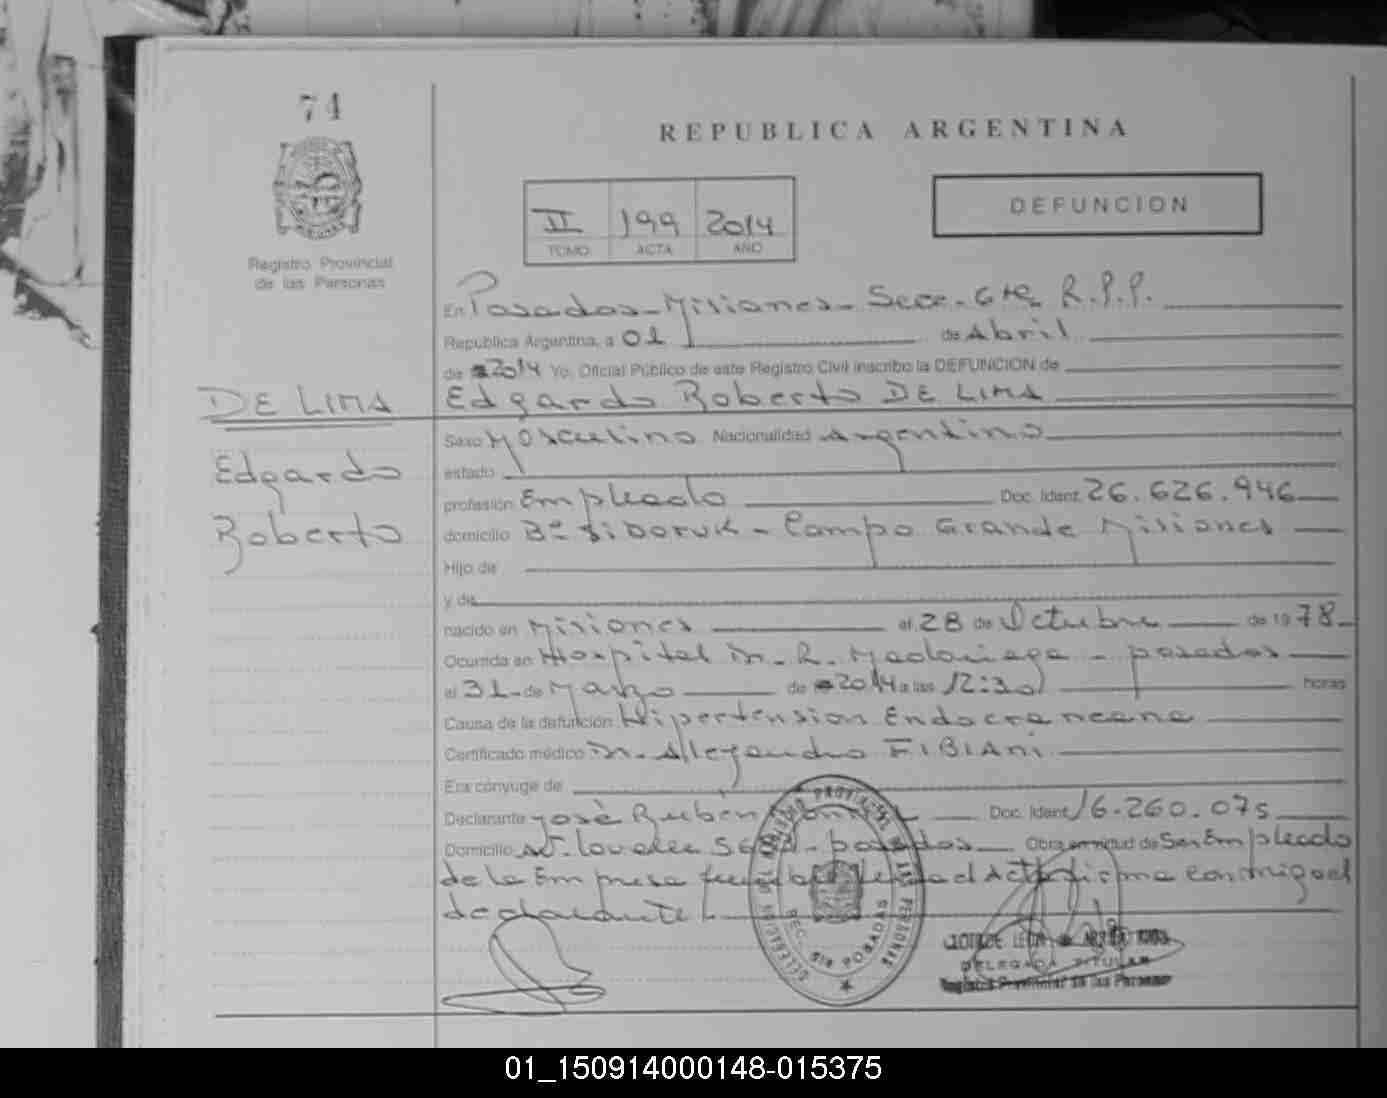 74
REPUBLICA ARGENTINA
DEFUNCION
II 199 2014
TOMO ACTA AÑO
Registro Provincial
de las Personas
En Posadas - Misiones - Secc. 6ta R.P.P.
República Argentina, a 01 de Abril
de 2014 Yo, Oficial Público de este Registro Civil inscribo la DEFUNCION de
DE LIMA
Edgardo Roberto
Edgardo Roberto DE LIMA
Sexo Masculino Nacionalidad Argentino
estado
profesión Empleado Doc. Ident. 26.626.946
domicilio Bº SIDORUK - Campo Grande Misiones
Hijo de
y de
nacido en Misiones el 28 de Octubre de 1978
Ocurrida en Hospital Dr. R. Madariaga - posadas
el 31 de Marzo de 2014 a las 12:30 horas
Causa de la defunción Hipertension Endocraneana
Certificado médico Dr. Alejandro FIBIANI
Era cónyuge de
Declarante José Rubén Doc. Ident. 16.260.075
Domicilio posadas Obra en virtud de Ser Empleado
de la Empresa firma conmigo el
declarante
DELEGACION REGISTRO PROVINCIAL DE LAS PERSONAS
POSADAS
DELEGADA TITULAR
Registro Provincial de las Personas
01_150914000148-015375